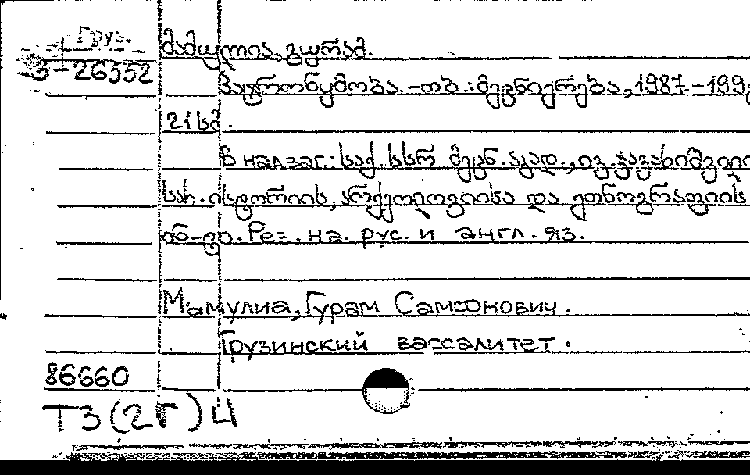 Груз.
3-26552
მამულია, გურამ.
პატრონყმობა. -თბ.: მეცნიერება, 1987-199
21 სმ.
В надзаг.: საქ. სსრ მეცნ. აკად., ივ. ჯავახიშვილი
სახ. ისტორიის, არქეოლოგიისა და ეთნოგრაფიის
ინ-ტი. Рез. на. рус. и англ. яз.
Мамулиа, Гурам Самсонович.
Грузинский вассалитет.
86660
Т3(2Г)4